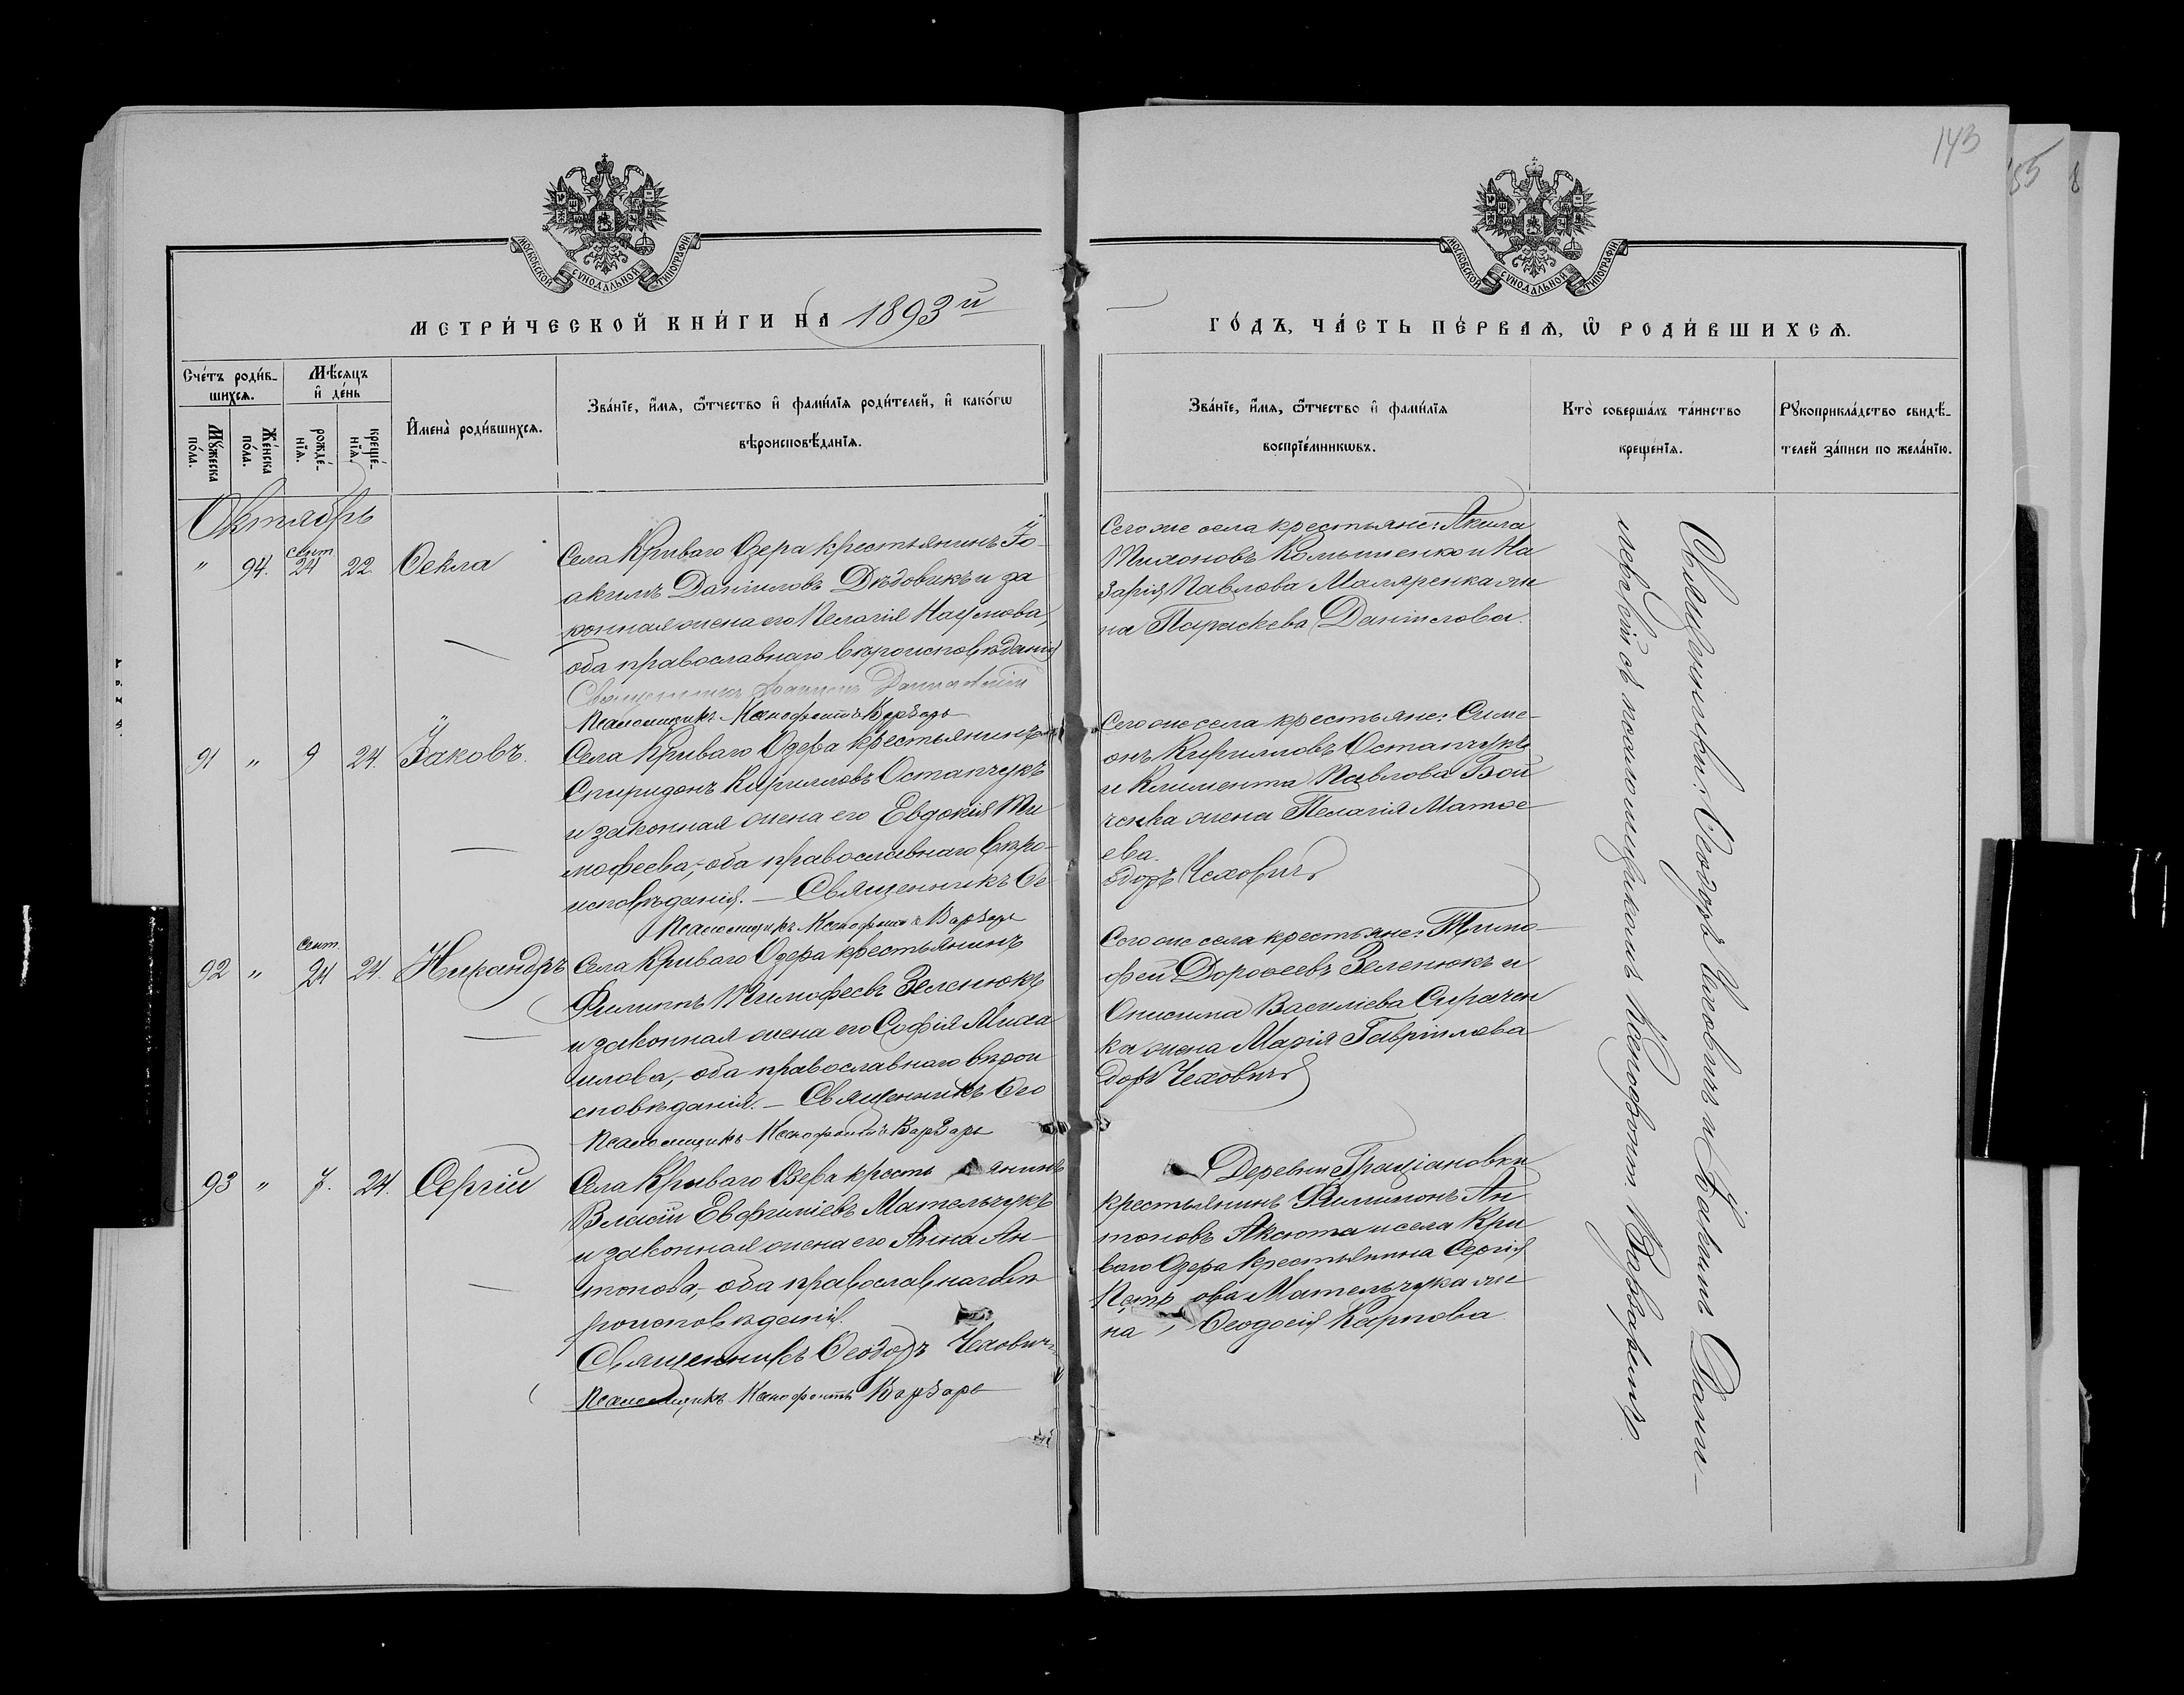 143
МОСКОВСКОЙ СѴНОДАЛЬНОЙ ТИПОГРАФІИ
МОСКОВСКОЙ СѴНОДАЛЬНОЙ ТИПОГРАФІИ
МЕТРИ́ЧЕСКОЙ КНИ́ГИ НА 1893й
ГО́ДЪ, ЧА́СТЬ ПЕ́РВАѦ, Ѡ҆ РОДИ́ВШИХСѦ.
Сче́тъ роди́в-
шихсѧ.
Мѣ́сяцъ
и҆ де́нь
Мꙋ́жеска
по́ла.
Же́нска
по́ла.
рожде́-
нїѧ.
креще́-
нїѧ.
И҆мена̀ роди́вшихсѧ.
Зва́нїе, и҆́мѧ, ѻ҆́тчество и҆ фами́лїѧ роди́телей, и҆ како́гѡ
вѣроисповѣ́данїѧ.
Зва́нїе, и҆́мѧ, ѻ҆́тчество и҆ фами́лїѧ
воспрїе́мникѡвъ.
Кто̀ соверша́лъ та́инство
креще́нїѧ.
Рꙋкоприкла́дство свидѣ́-
телей за́писи по жела́нїю.
Октябрь
" 94. сент. 24 22. Ѳекла
Села Криваго Озера крестьянинъ Іо-
акимъ Даніиловъ Дѣдовикъ и за
конная жена его Пелагія Наумова,
оба православнаго вѣроисповѣданія
Священникъ Іоакимъ
Псаломщикъ Ксенофонтъ Варзарь
Сего же села крестьяне: Акила
Тихоновъ Колышенко и На
зарія Павлова Маляренка же
на Параскева Даніилова.
91 " 9 24. Іаковъ.
Села Криваго Озера крестьянинъ
Спиридонъ Кирилловъ Остапчукъ
и законная жена его Евдокія Ти
мофеева, оба православнаго вѣро-
исповѣданія. — Священникъ Ѳе
Псаломщикъ Ксенофонтъ Варзарь
Сего же села крестьяне: Симе-
онъ Кирилловъ Остапчукъ
и Климента Павлова Бой
ченка жена Пелагія Матѳе
ева.
одоръ Чеховичъ
92 " сент. 24 24. Никандръ
Села Криваго Озера крестьянинъ
Филиппъ Тимофеевъ Зеленюкъ
и законная жена его Софія Миха
илова, оба православнаго вѣрои
сповѣданія. — Священникъ Ѳео
Псаломщикъ Ксенофонтъ Варзарь
Сего же села крестьяне: Тимо-
фей Дороѳеевъ Зеленюкъ и
Онисима Василіева Сирачен
ка жена Марія Гавріилова
доръ Чеховичъ
93 " 7. 24. Сергій
Села Криваго Озера кресть янинъ
Власій Евфиміевъ Мательчукъ
и законная жена его Анна Ан-
тонова, оба православнаго вѣ
роисповѣданія.
Священникъ Ѳеодоръ Чеховичъ
Псаломщикъ Ксенофонтъ Варзарь
Деревни Граціановки
крестьянинъ Филимонъ Ан
тоновъ Аксюта и села Кри
ваго Озера крестьянина Сергія
Петр ова Мательчука же
на, Ѳеодосія Карпова
Священники: Ѳеодоръ Чеховичъ и Іоакимъ
съ псаломщикомъ Ксенофонтомъ Варзаремъ.